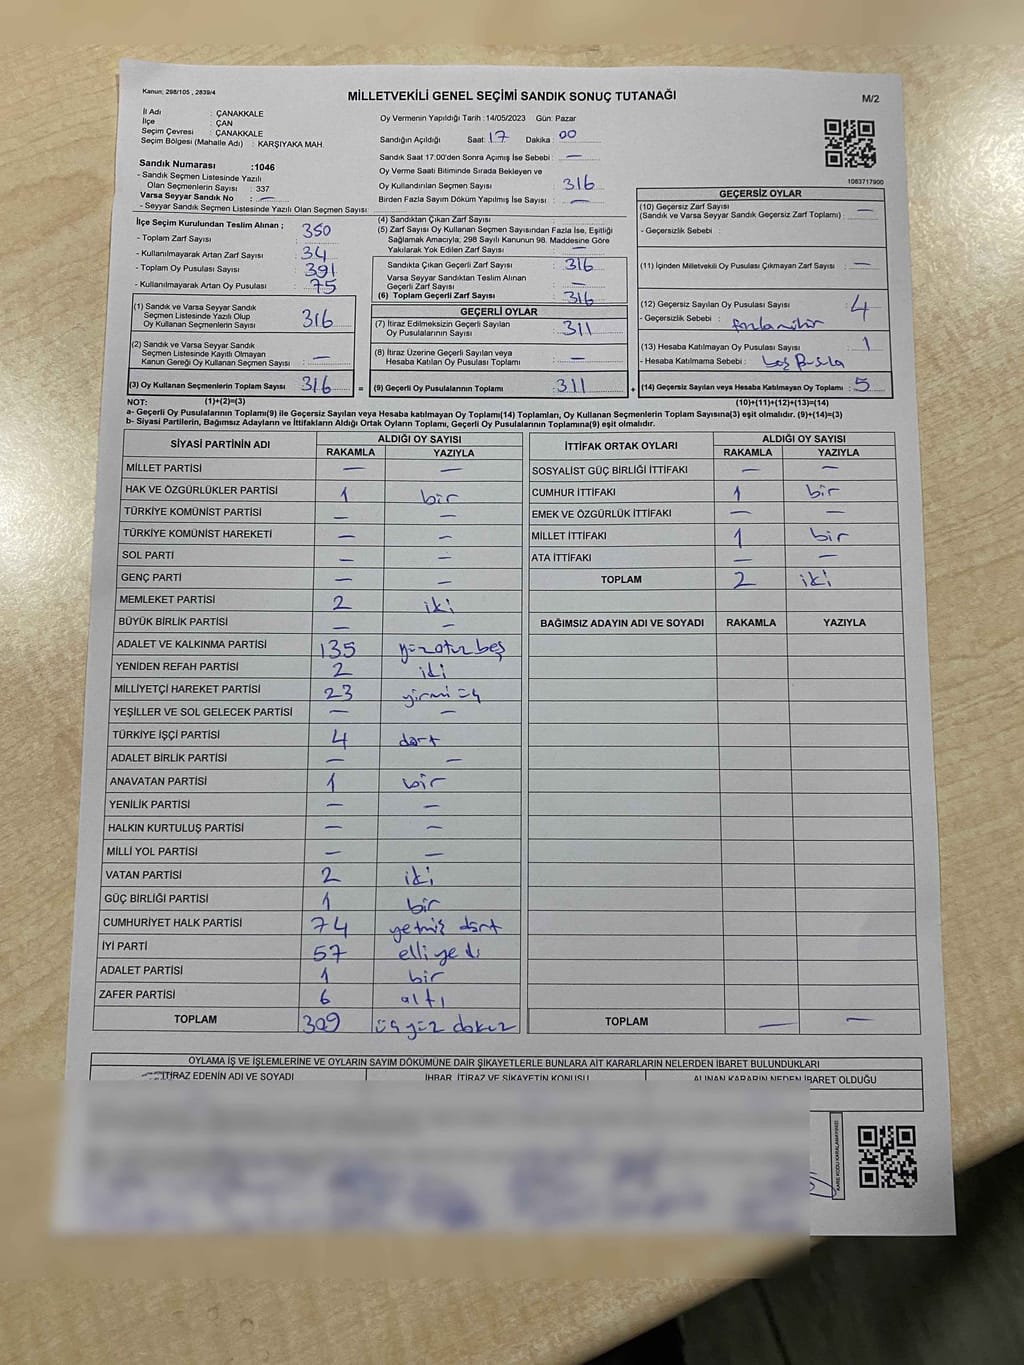 Kanun; 298/105 , 2839/4
MİLLETVEKİLİ GENEL SEÇİMİ SANDIK SONUÇ TUTANAĞI
M/2
İl Adı : ÇANAKKALE
İlçe : ÇAN
Seçim Çevresi : ÇANAKKALE
Seçim Bölgesi (Mahalle Adı) : KARŞIYAKA MAH.
Sandık Numarası :1046
- Sandık Seçmen Listesinde Yazılı
Olan Seçmenlerin Sayısı : 337
Varsa Seyyar Sandık No : —
- Seyyar Sandık Seçmen Listesinde Yazılı Olan Seçmen Sayısı :
Oy Vermenin Yapıldığı Tarih : 14/05/2023 Gün: Pazar
Sandığın Açıldığı Saat: 17 Dakika : 00
Sandık Saat 17:00'den Sonra Açımış İse Sebebi : —
Oy Verme Saati Bitiminde Sırada Bekleyen ve
Oy Kullandırılan Seçmen Sayısı : 316
Birden Fazla Sayım Döküm Yapılmış İse Sayısı : —
1083717900
İlçe Seçim Kurulundan Teslim Alınan ;
- Toplam Zarf Sayısı : 350
- Kullanılmayarak Artan Zarf Sayısı : 34
- Toplam Oy Pusulası Sayısı : 391
- Kullanılmayarak Artan Oy Pusulası : 75
(1) Sandık ve Varsa Seyyar Sandık
Seçmen Listesinde Yazılı Olup
Oy Kullanan Seçmenlerin Sayısı : 316
(2) Sandık ve Varsa Seyyar Sandık
Seçmen Listesinde Kayıtlı Olmayan
Kanun Gereği Oy Kullanan Seçmen Sayısı : —
(3) Oy Kullanan Seçmenlerin Toplam Sayısı : 316 =
(4) Sandıktan Çıkan Zarf Sayısı :
(5) Zarf Sayısı Oy Kullanan Seçmen Sayısından Fazla İse, Eşitliği
Sağlamak Amacıyla; 298 Sayılı Kanunun 98. Maddesine Göre
Yakılarak Yok Edilen Zarf Sayısı : —
Sandıkta Çıkan Geçerli Zarf Sayısı : 316
Varsa Seyyar Sandıktan Teslim Alınan
Geçerli Zarf Sayısı : —
(6) Toplam Geçerli Zarf Sayısı : 316
GEÇERLİ OYLAR
(7) İtiraz Edilmeksizin Geçerli Sayılan
Oy Pusulalarının Sayısı : 311
(8) İtiraz Üzerine Geçerli Sayılan veya
Hesaba Katılan Oy Pusulası Toplamı : —
(9) Geçerli Oy Pusulalarının Toplamı : 311 +
GEÇERSİZ OYLAR
(10) Geçersiz Zarf Sayısı : —
(Sandık ve Varsa Seyyar Sandık Geçersiz Zarf Toplamı)
- Geçersizlik Sebebi :
(11) İçinden Milletvekili Oy Pusulası Çıkmayan Zarf Sayısı : —
(12) Geçersiz Sayılan Oy Pusulası Sayısı : 4
- Geçersizlik Sebebi :
(13) Hesaba Katılmayan Oy Pusulası Sayısı : 1
- Hesaba Katılmama Sebebi : boş pusula
(14) Geçersiz Sayılan veya Hesaba Katılmayan Oy Toplamı : 5
NOT: (1)+(2)=(3) (10)+(11)+(12)+(13)=(14)
a- Geçerli Oy Pusulalarının Toplamı(9) ile Geçersiz Sayılan veya Hesaba katılmayan Oy Toplamı(14) Toplamları, Oy Kullanan Seçmenlerin Toplam Sayısına(3) eşit olmalıdır. (9)+(14)=(3)
b- Siyasi Partilerin, Bağımsız Adayların ve İttifakların Aldığı Ortak Oyların Toplamı, Geçerli Oy Pusulalarının Toplamına(9) eşit olmalıdır.
SİYASİ PARTİNİN ADI ALDIĞI OY SAYISI
RAKAMLA YAZIYLA
MİLLET PARTİSİ — —
HAK VE ÖZGÜRLÜKLER PARTİSİ 1 bir
TÜRKİYE KOMÜNİST PARTİSİ — —
TÜRKİYE KOMÜNİST HAREKETİ — —
SOL PARTİ — —
GENÇ PARTİ — —
MEMLEKET PARTİSİ 2 iki
BÜYÜK BİRLİK PARTİSİ — —
ADALET VE KALKINMA PARTİSİ 135 yüzotuzbeş
YENİDEN REFAH PARTİSİ 2 iki
MİLLİYETÇİ HAREKET PARTİSİ 23 yirmi üç
YEŞİLLER VE SOL GELECEK PARTİSİ — —
TÜRKİYE İŞÇİ PARTİSİ 4 dört
ADALET BİRLİK PARTİSİ — —
ANAVATAN PARTİSİ 1 bir
YENİLİK PARTİSİ — —
HALKIN KURTULUŞ PARTİSİ — —
MİLLİ YOL PARTİSİ — —
VATAN PARTİSİ 2 iki
GÜÇ BİRLİĞİ PARTİSİ 1 bir
CUMHURİYET HALK PARTİSİ 74 yetmiş dört
İYİ PARTİ 57 elli yedi
ADALET PARTİSİ 1 bir
ZAFER PARTİSİ 6 altı
TOPLAM 309 üçyüz dokuz
İTTİFAK ORTAK OYLARI ALDIĞI OY SAYISI
RAKAMLA YAZIYLA
SOSYALİST GÜÇ BİRLİĞİ İTTİFAKI — —
CUMHUR İTTİFAKI 1 bir
EMEK VE ÖZGÜRLÜK İTTİFAKI — —
MİLLET İTTİFAKI 1 bir
ATA İTTİFAKI — —
TOPLAM 2 iki
BAĞIMSIZ ADAYIN ADI VE SOYADI RAKAMLA YAZIYLA
TOPLAM — —
OYLAMA İŞ VE İŞLEMLERİNE VE OYLARIN SAYIM DÖKÜMÜNE DAİR ŞİKAYETLERLE BUNLARA AİT KARARLARIN NELERDEN İBARET BULUNDUKLARI
İTİRAZ EDENİN ADI VE SOYADI İHBAR, İTİRAZ VE ŞİKAYETİN KONUSU ALINAN KARARIN NEDEN İBARET OLDUĞU